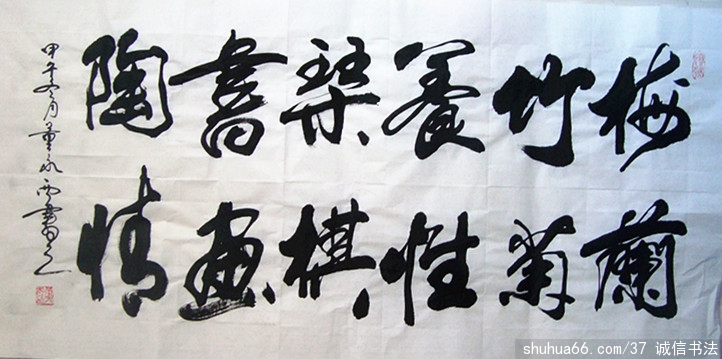 梅蘭
竹菊
養性
琹棋
書畫
陶情
甲午冬月董永西書之
shuhua66.com/37 诚信书法